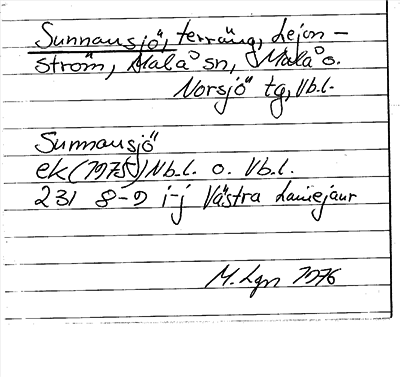 Sunnansjö, terräng, Lejon-
ström, Malå sn, Malå o.
Norsjö tg, Vb.l.
Sunnansjö
ek (1975) Nb.l. o. Vb.l.
231 8-9 i-j Västra Lainejaur
M. Lgn 1976